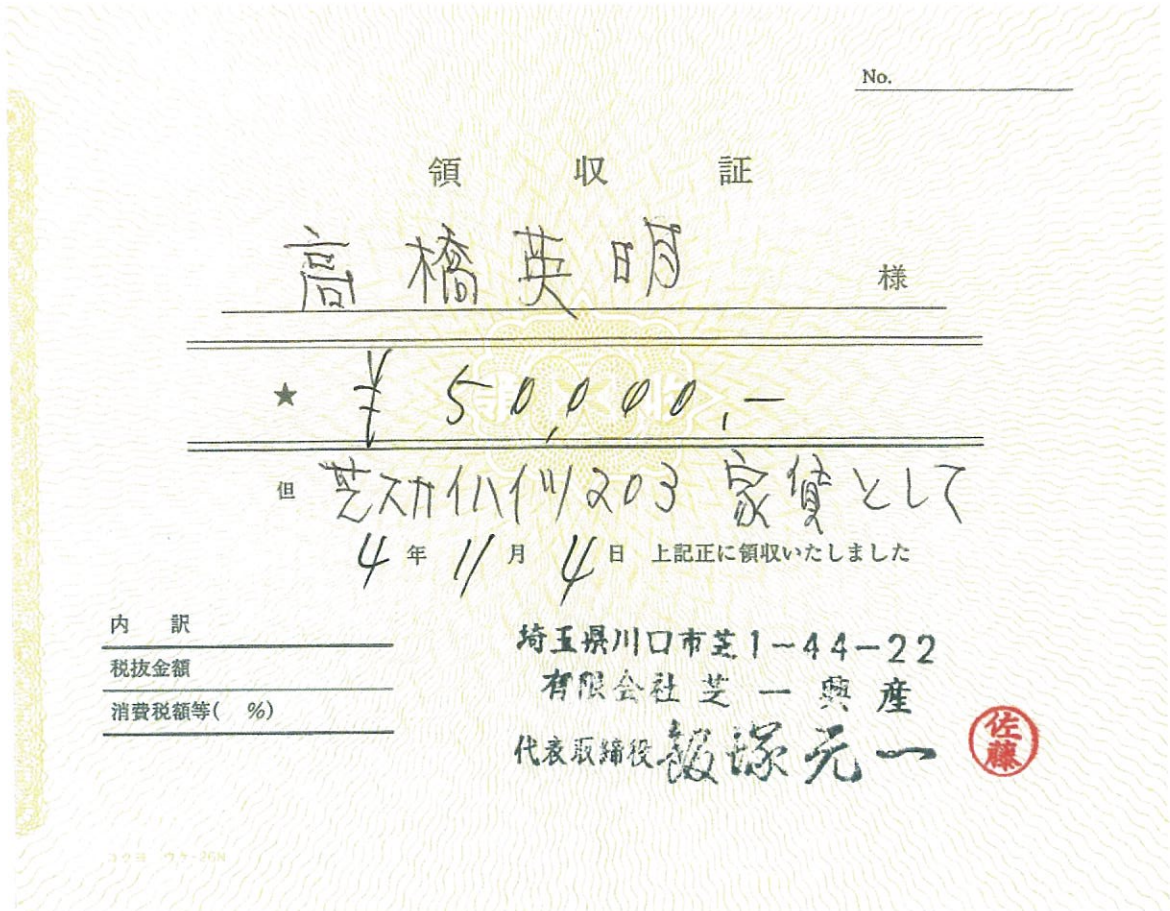 No.
領収証
高橋英明 様
★ ¥50,000,-
但 芝スカイハイツ203 家賃として
4年11月4日 上記正に領収いたしました
内訳
税抜金額
消費税額等( %)
埼玉県川口市芝1-44-22
有限会社芝一興産
代表取締役 飯塚元一
佐藤
コクヨ ウケ-26N